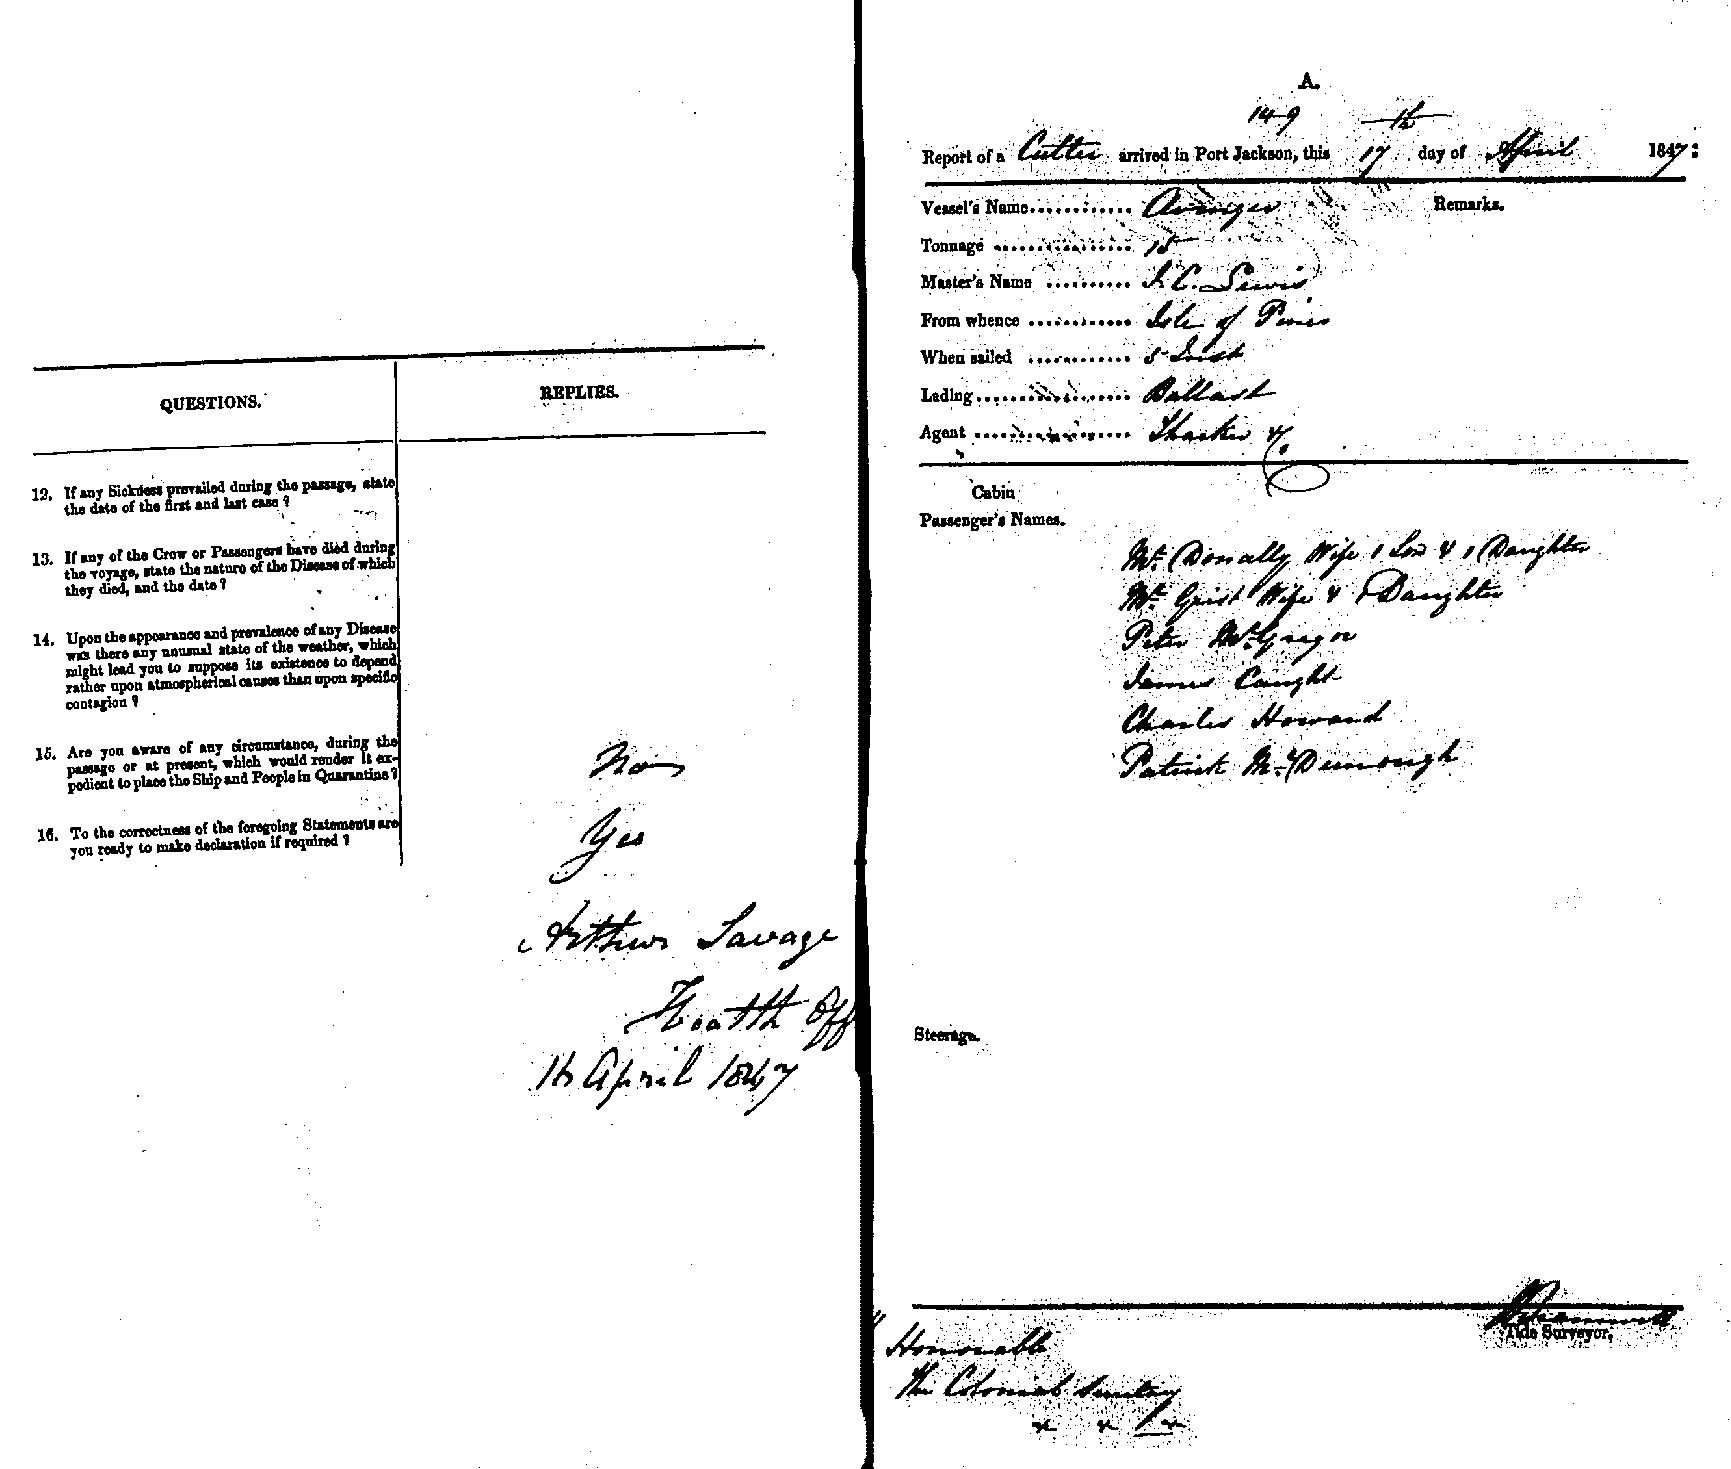 QUESTIONS.
REPLIES.
12. If any Sickness prevailed during the passage, state
the date of the first and last case ?
13. If any of the Crew or Passengers have died during
the voyage, state the nature of the Disease of which
they died, and the date ?
14. Upon the appearance and prevalence of any Disease
was there any unusual state of the weather, which
might lead you to suppose its existence to depend
rather upon atmospherical causes than upon specific
contagion ?
15. Are you aware of any circumstance, during the
passage or at present, which would render it ex-
pedient to place the Ship and People in Quarantine ?
No
16. To the correctness of the foregoing Statements are
you ready to make declaration if required ?
Yes
Arthur Savage
Health Off
16 April 1847
A.
149
Report of a Cutter arrived in Port Jackson, this 17 day of April 1847:
Vessel's Name............ Avenger
Remarks.
Tonnage ................ 15
Master's Name .......... J. C. Lewis
From whence ............ Isle of Pines
When sailed ............ 5 Inst
Lading.................. Ballast
Agent .................. Thacker &.
Cabin
Passenger's Names.
Mr. Donally Wife 1 Son & 1 Daughter
Mr. Grist Wife & 1 Daughter
Peter McGregor
James Caught
Charles Howard
Patrick McDermough
Steerage.
Tide Surveyor.
Honorable
The Colonial Secretary